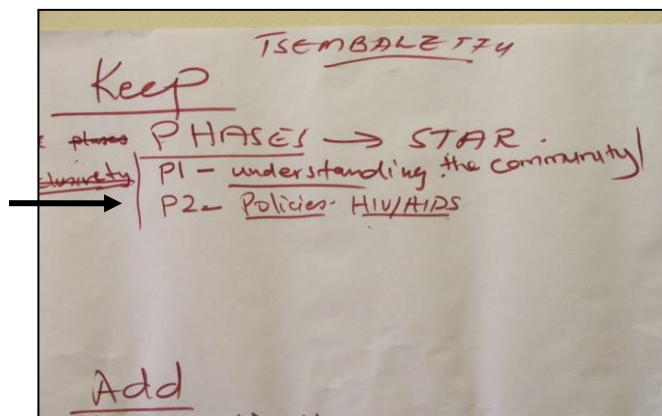 TSEMBALETTY
Keep
phases PHASES → STAR.
clusivety P1 - understanding the community
P2 - Policies - HIV/AIDS
Add